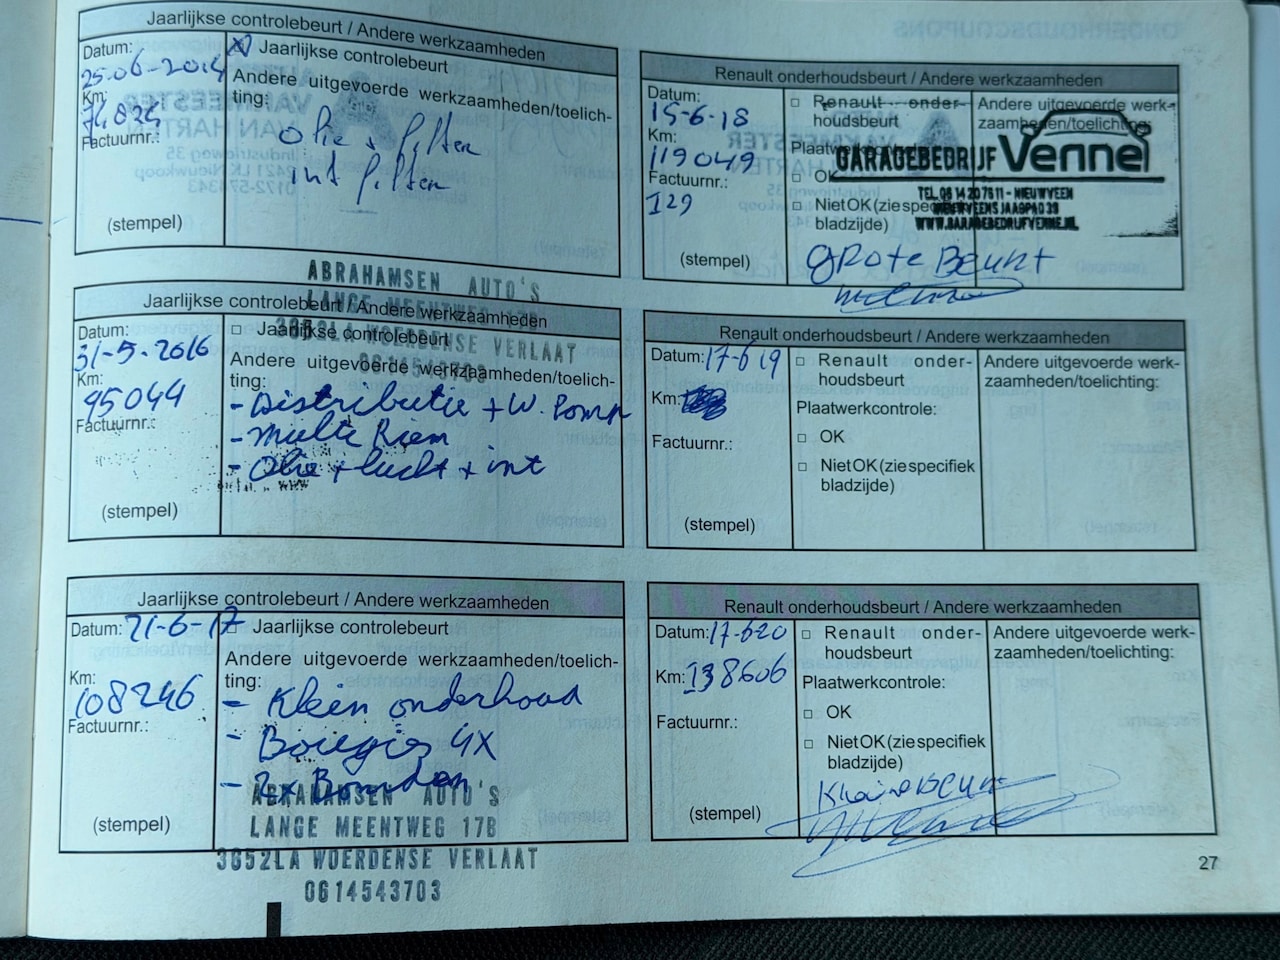 Jaarlijkse controlebeurt / Andere werkzaamheden
Datum:
25-06-2014
Km:
74824
Factuurnr.:
(stempel)
Jaarlijkse controlebeurt
Andere uitgevoerde werkzaamheden/toelich-
ting:
olie, filter
int filter
ABRAHAMSEN AUTO'S
LANGE MEENTWEG 17B
3652LA WOERDENSE VERLAAT
0614543703
Jaarlijkse controlebeurt / Andere werkzaamheden
Datum:
31-5-2016
Km:
95044
Factuurnr.:
(stempel)
Jaarlijkse controlebeurt
Andere uitgevoerde werkzaamheden/toelich-
ting:
- Distributie + W. Pomp
- Multi Riem
- Olie + lucht + int
Jaarlijkse controlebeurt / Andere werkzaamheden
Datum: 21-6-17
Km:
108246
Factuurnr.:
(stempel)
Jaarlijkse controlebeurt
Andere uitgevoerde werkzaamheden/toelich-
ting:
- Klein onderhoud
- Bougies 4x
- 2x Banden
ABRAHAMSEN AUTO'S
LANGE MEENTWEG 17B
3652LA WOERDENSE VERLAAT
0614543703
Renault onderhoudsbeurt / Andere werkzaamheden
Datum:
15-6-18
Km:
119049
Factuurnr.:
129
(stempel)
Renault onder-
houdsbeurt
Plaatwerkcontrole:
OK
Niet OK (zie specifiek
bladzijde)
Andere uitgevoerde werk-
zaamheden/toelichting:
GARAGEBEDRIJF Vennel
TEL. 06 14 20 76 11 - NIEUWVEEN
NIEUWVEENS JAAGPAD 39
Grote Beurt
Renault onderhoudsbeurt / Andere werkzaamheden
Datum: 17-6-19
Km:
Factuurnr.:
(stempel)
Renault onder-
houdsbeurt
Plaatwerkcontrole:
OK
Niet OK (zie specifiek
bladzijde)
Andere uitgevoerde werk-
zaamheden/toelichting:
Renault onderhoudsbeurt / Andere werkzaamheden
Datum: 17-6-20
Km: 138606
Factuurnr.:
(stempel)
Renault onder-
houdsbeurt
Plaatwerkcontrole:
OK
Niet OK (zie specifiek
bladzijde)
Andere uitgevoerde werk-
zaamheden/toelichting:
Kleine beurt
27